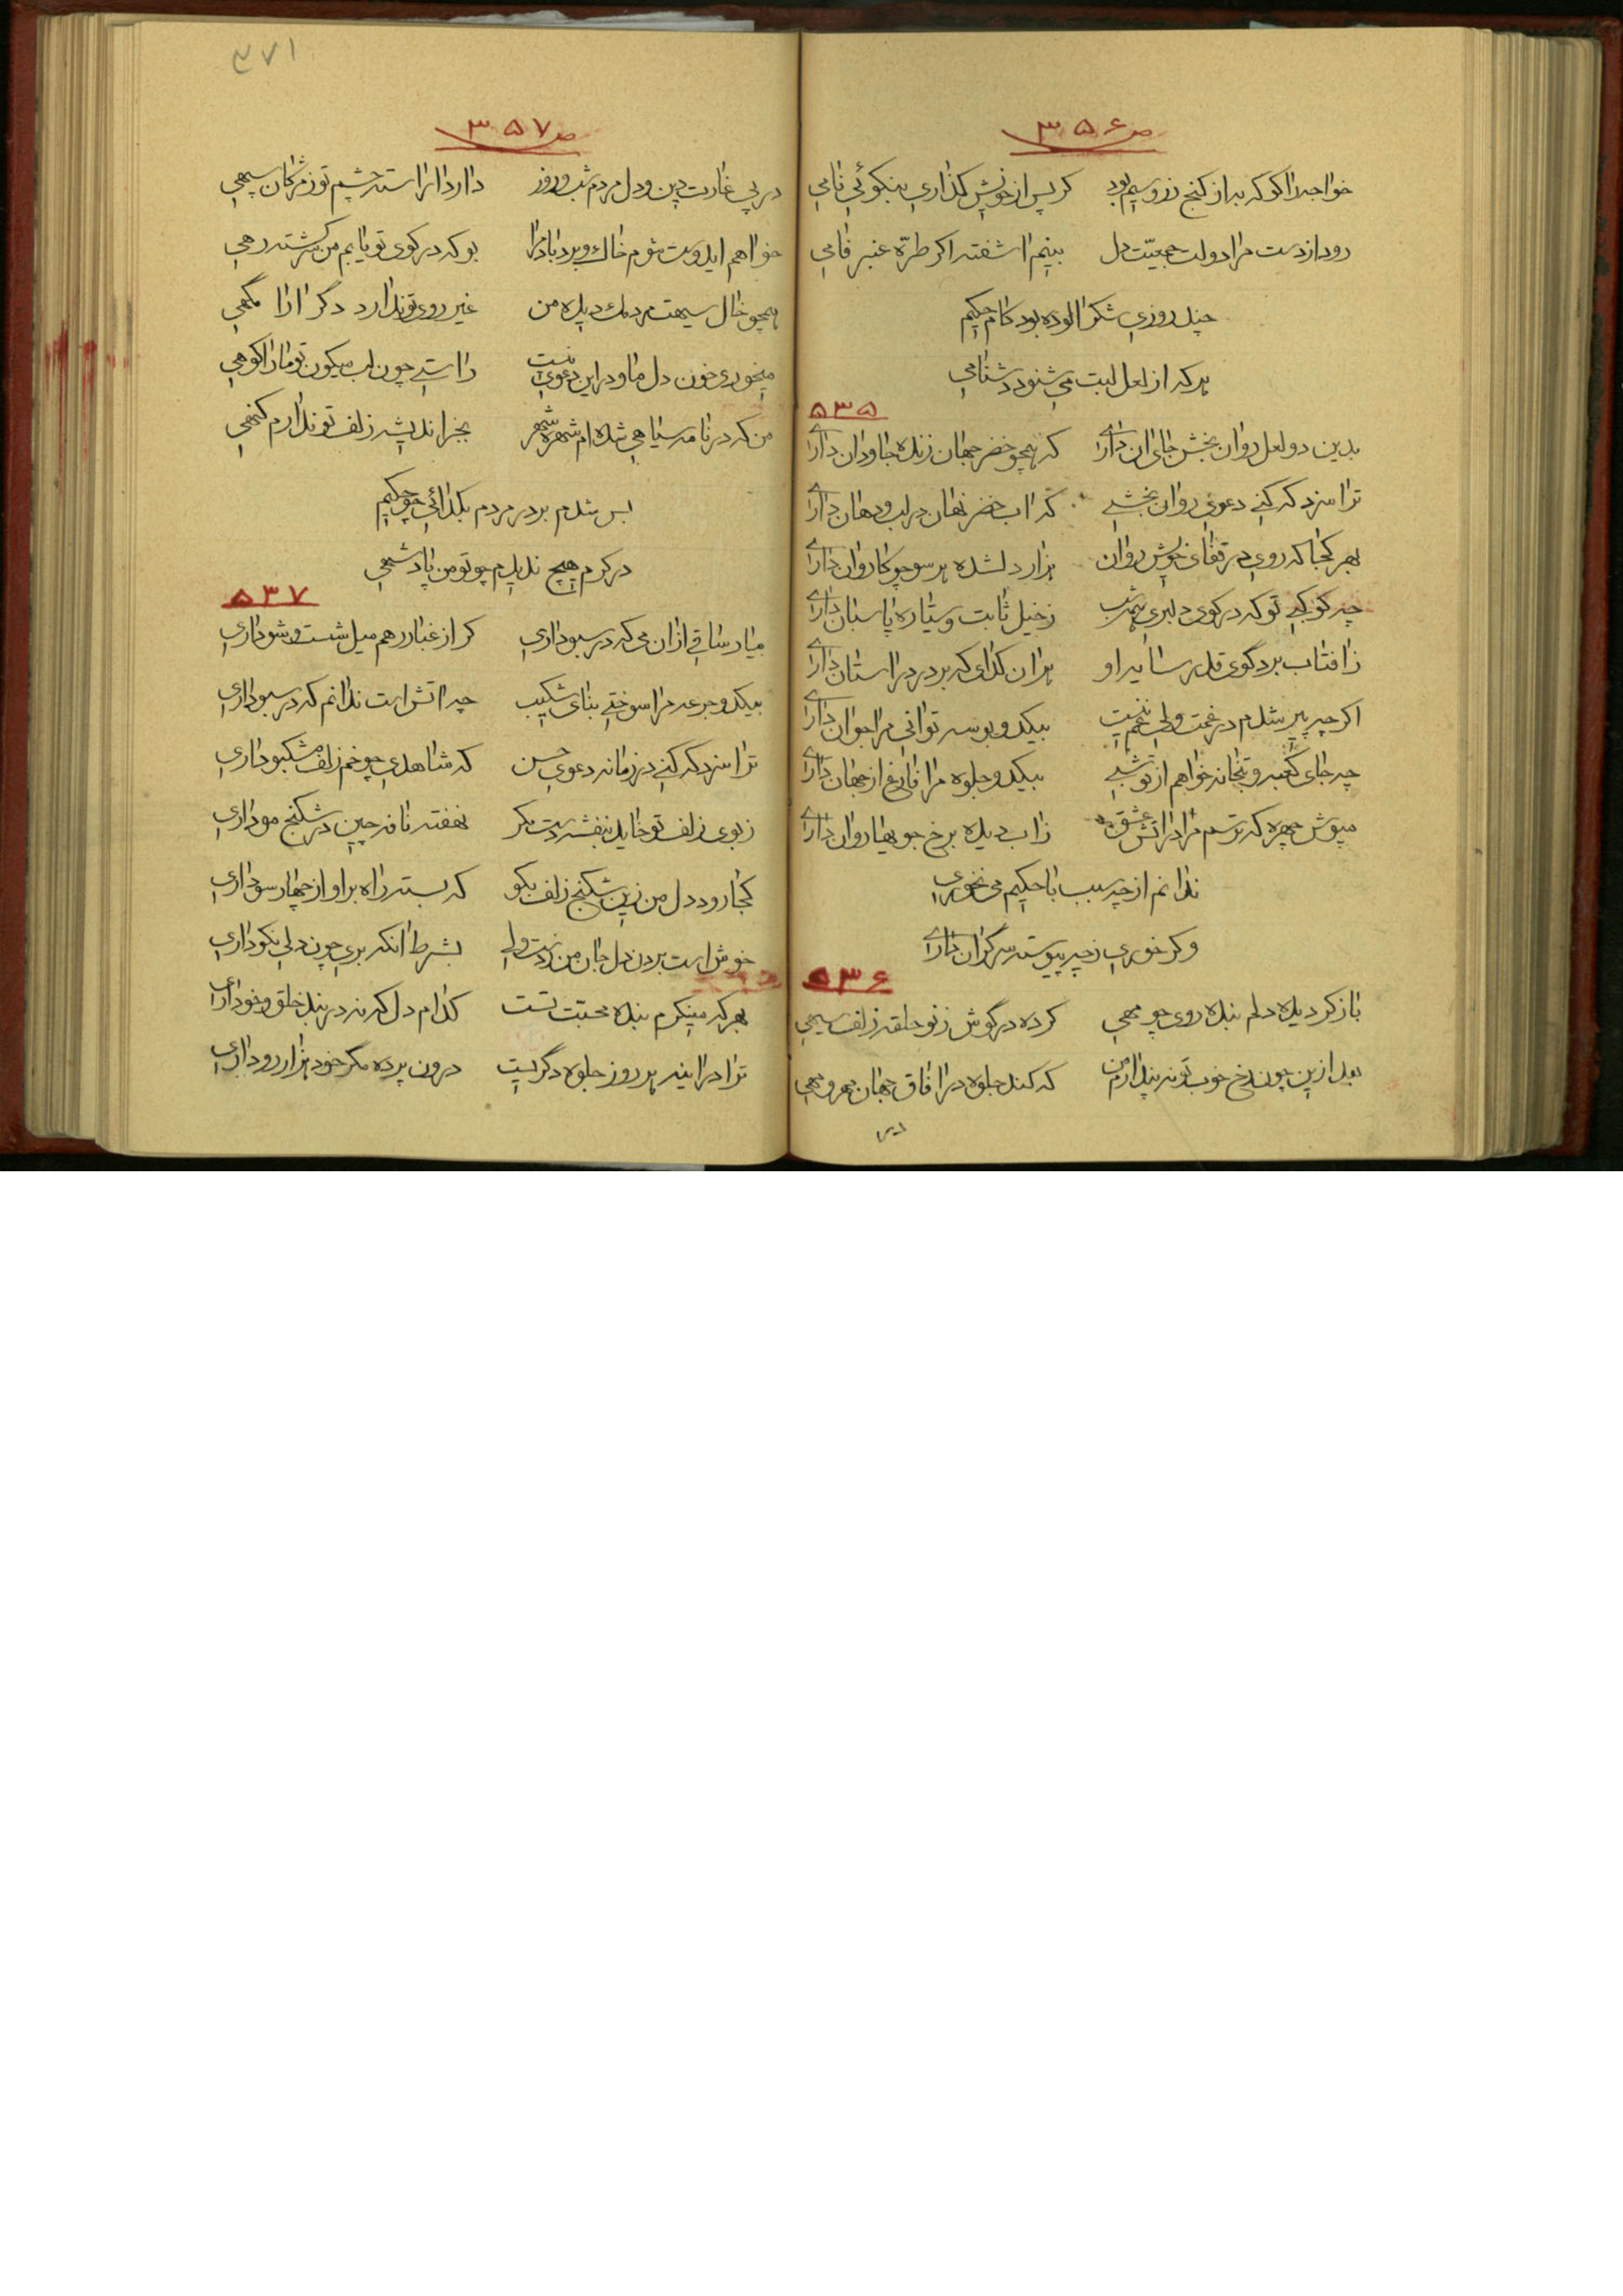 ص ۳۵۶
خواجه را گو که به از گنج زر و سیم بود    گر پس از خویش گذاری بنکوئی نامی
رود از دست مرا دولت جمعیّت دل    بینم اشفته اگر طرّه عنبر فامی
چند روزی شکرالوده بود کام حکیم
هر که از لعل لبت می شنود دشنامی
۵۳۵
بدین دو لعل روان بخش جای ان داری    که همچو خضر جهان زنده جاودان داری
ترا سزد که کنی دعوی روان بخشی    که اب خضر نهان در لب و دهان داری
بهر کجا که روی در قفای خویش روان    هزار دلشده هر سو چو کاروان داری
چه کوکبی تو که در کوی دلبری همه شب    ز خیل ثابت و سیّاره پاسبان داری
ز افتاب برد گوی قدر سایه او    هر ان گدای که بر در در استان داری
اگر چه پیر شدم در غمت ولی غم نیست    بیکدو بوسه توانی مرا جوان داری
چه جای کعبه و بتخانه خواهم از تو شبی    بیکدو جلوه مرا فارغ از جهان داری
مپوش چهره که ترسم مرا در اتش عشق    ز اب دیده برخ جویها روان داری
ندانم از چه سبب با حکیم می نخوری
وگر خوری ز چه پیوسته سرگران داری
۵۳۶
باز کردیده دلم بنده روی چو مهی    کرده در گوش ز نو حلقه زلف سیهی
بعد ازین چون رخ خوب تو نه پندارم من    که کند جلوه در افاق جهان مهر و مهی
۳۷۱
ص ۳۵۷
در پی غارت دین و دل مردم شب و روز    دارد اراسته چشم تو ز مژگان سپهی
خواهم ایدوست شوم خاک و برد باد مرا    بو که در کوی تو یابم من سرگشته رهی
همچو خال سیهت مردمک دیده من    غیر روی تو ندارد دگر ارا مگهی
میخوری خون دل ما و درین دعوی نیست    راستی چون لب میگون تو ما را گوهی
من که در نامه سیاهی شده ام شهره شهر    بجز اندیشه زلف تو ندارم گنهی
بس شدم بر در مردم بگدائی چو حکیم
در کرم هیچ ندیدم چو تو من پادشهی
۵۳۷
بیار ساقی از ان می که در سبو داری    گر از غبار رهم میل شست و شو داری
بیکدو جرعه مرا سوختی بنای شکیب    چه اتش است ندانم که در سبو داری
ترا سزد که کنی در زمانه دعوی حسن    که شاهدی چو خم زلف مشکبو داری
ز بوی زلف تو خاید بنفشه دست مگر    نهفته نافه چین در شکنج مو داری
کجا رود دل من زین شکنج زلف بگو    که بسته راه بر او از چهار سو داری
خوش است بردن دل جان من ز دست ولی    بشرط انکه بری چون دلی نکو داری
بهر که مینگرم بنده محبّت تست    کدام دل که نه در بند خلق و خو داری
ترا در اینه هر روز جلوه دگریست    درون پرده مگر خود هزار رو داری